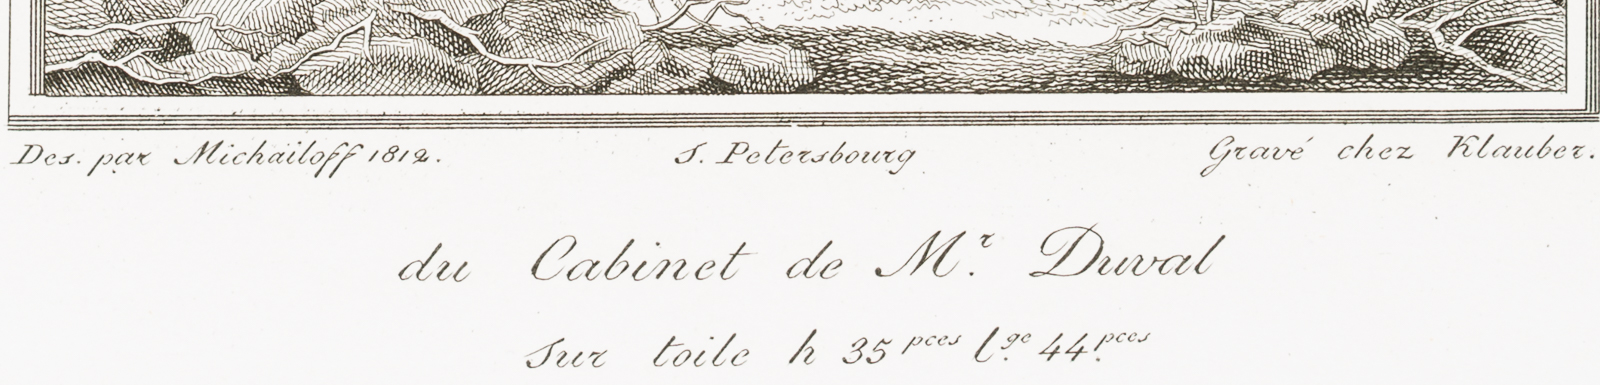 Des. par Michailoff 1812. S. Petersbourg Gravé chez Klauber.
du Cabinet de Mr. Duval
Sur toile h 35 pces lge. 44 pces